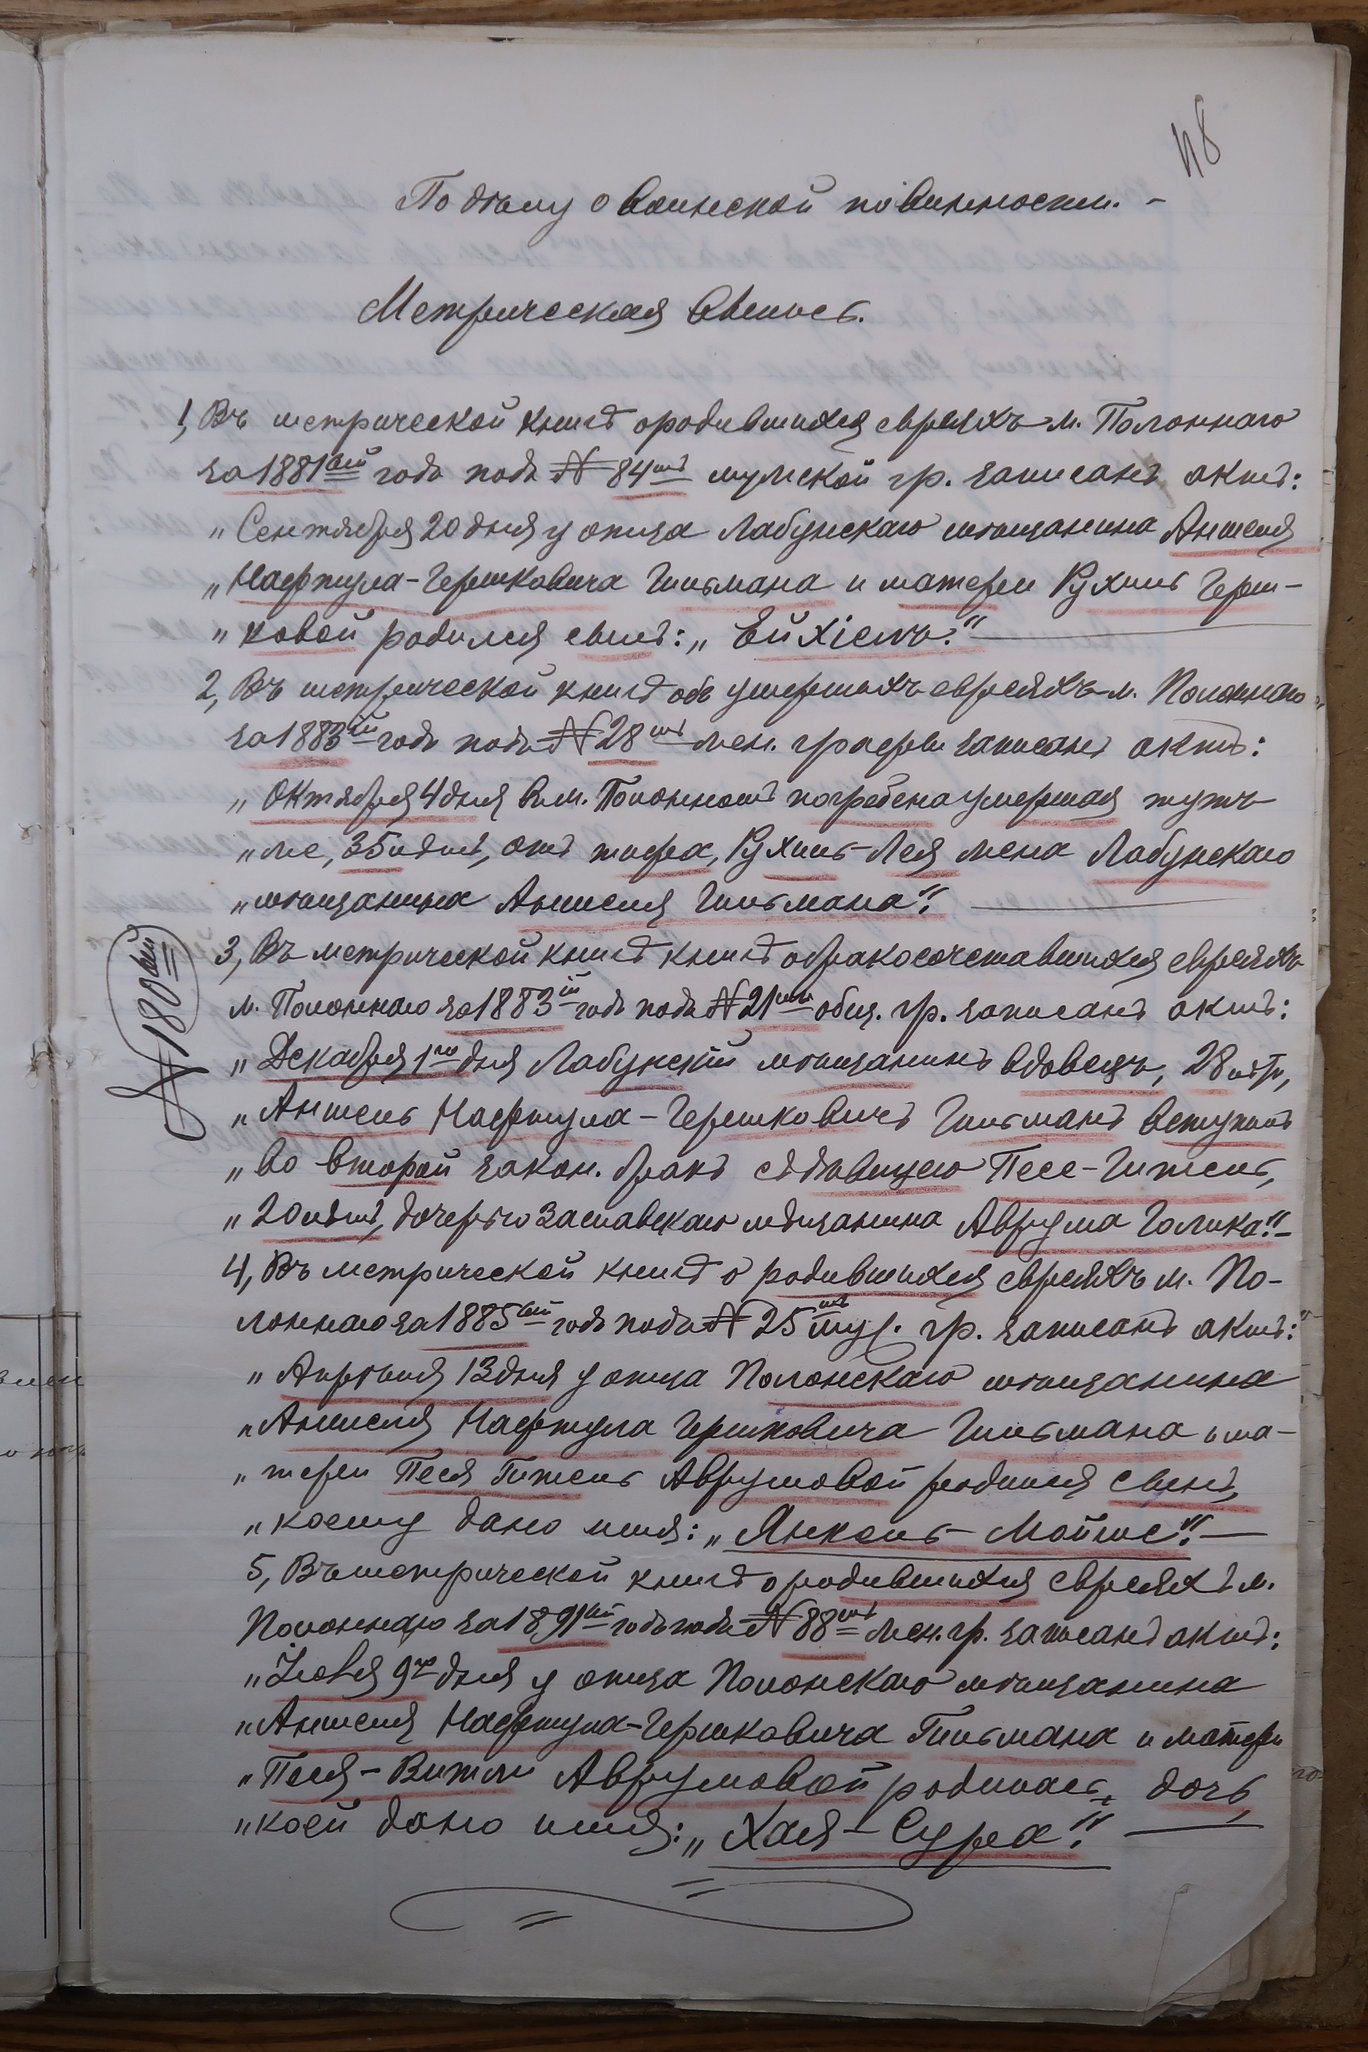 48
По дѣлу о воинской повинности. -
Метрическая Выпись.
1, Въ метрической книгѣ о родившихся евреяхъ м. Полоннаго
за 1881ый годъ подъ № 84мъ мужской гр. записанъ актъ:
„Сентября 20 дня у отца Лабунскаго мѣщанина Аншеля
„Нафтула-Гершковича Гительмана и матери Рухли Герш-
„ковой родился сынъ: „Ейхіель."
2, Въ метрической книгѣ объ умершихъ евреяхъ м. Полоннаго
за 1883ій годъ подъ № 28мъ жен. графы записанъ актъ:
„Октября 4 дня въ м. Полонномъ погребена умершая тутъ-
„же, 35 лѣтъ, отъ тифа, Рухль-Лея жена Лабунскаго
„мѣщанина Аншеля Гительмана".
№ 180ый
3, Въ метрической книгѣ книгѣ о бракосочетавшихся евреяхъ
м. Полоннаго за 1883ій годъ подъ № 21мъ общ. гр. записанъ актъ:
„Декабря 1го дня Лабунскій мѣщанинъ вдовецъ, 28 лѣтъ,
„Аншель Нафтула-Гершковичъ Гительманъ вступилъ
„во второй закон. бракъ съ дѣвицею Песе-Гитель,
„20 лѣтъ, дочерью Заславскаго мѣщанина Аврума Голика". -
4, Въ метрической книгѣ о родившихся евреяхъ м. По-
лоннаго за 1885ый годъ подъ № 25мъ муж. гр. записанъ актъ:
„Апрѣля 13 дня у отца Полонскаго мѣщанина
„Аншеля Нафтула Гершковича Гительмана и ма-
„тери Песя Гитель Аврумовой родился сынъ,
„коему дано имя: „Янкель-Мойше". -
5, Въ метрической книгѣ о родившихся евреяхъ м.
Полоннаго за 1891ый годъ подъ № 88мъ жен. гр. записанъ актъ:
„Іюля 9го дня у отца Полонскаго мѣщанина
„Аншеля Нафтула-Гершковича Гительмана и матери
„Песя-Витли Аврумовой родилась дочь,
„коей дано имя: „Хая-Сура".